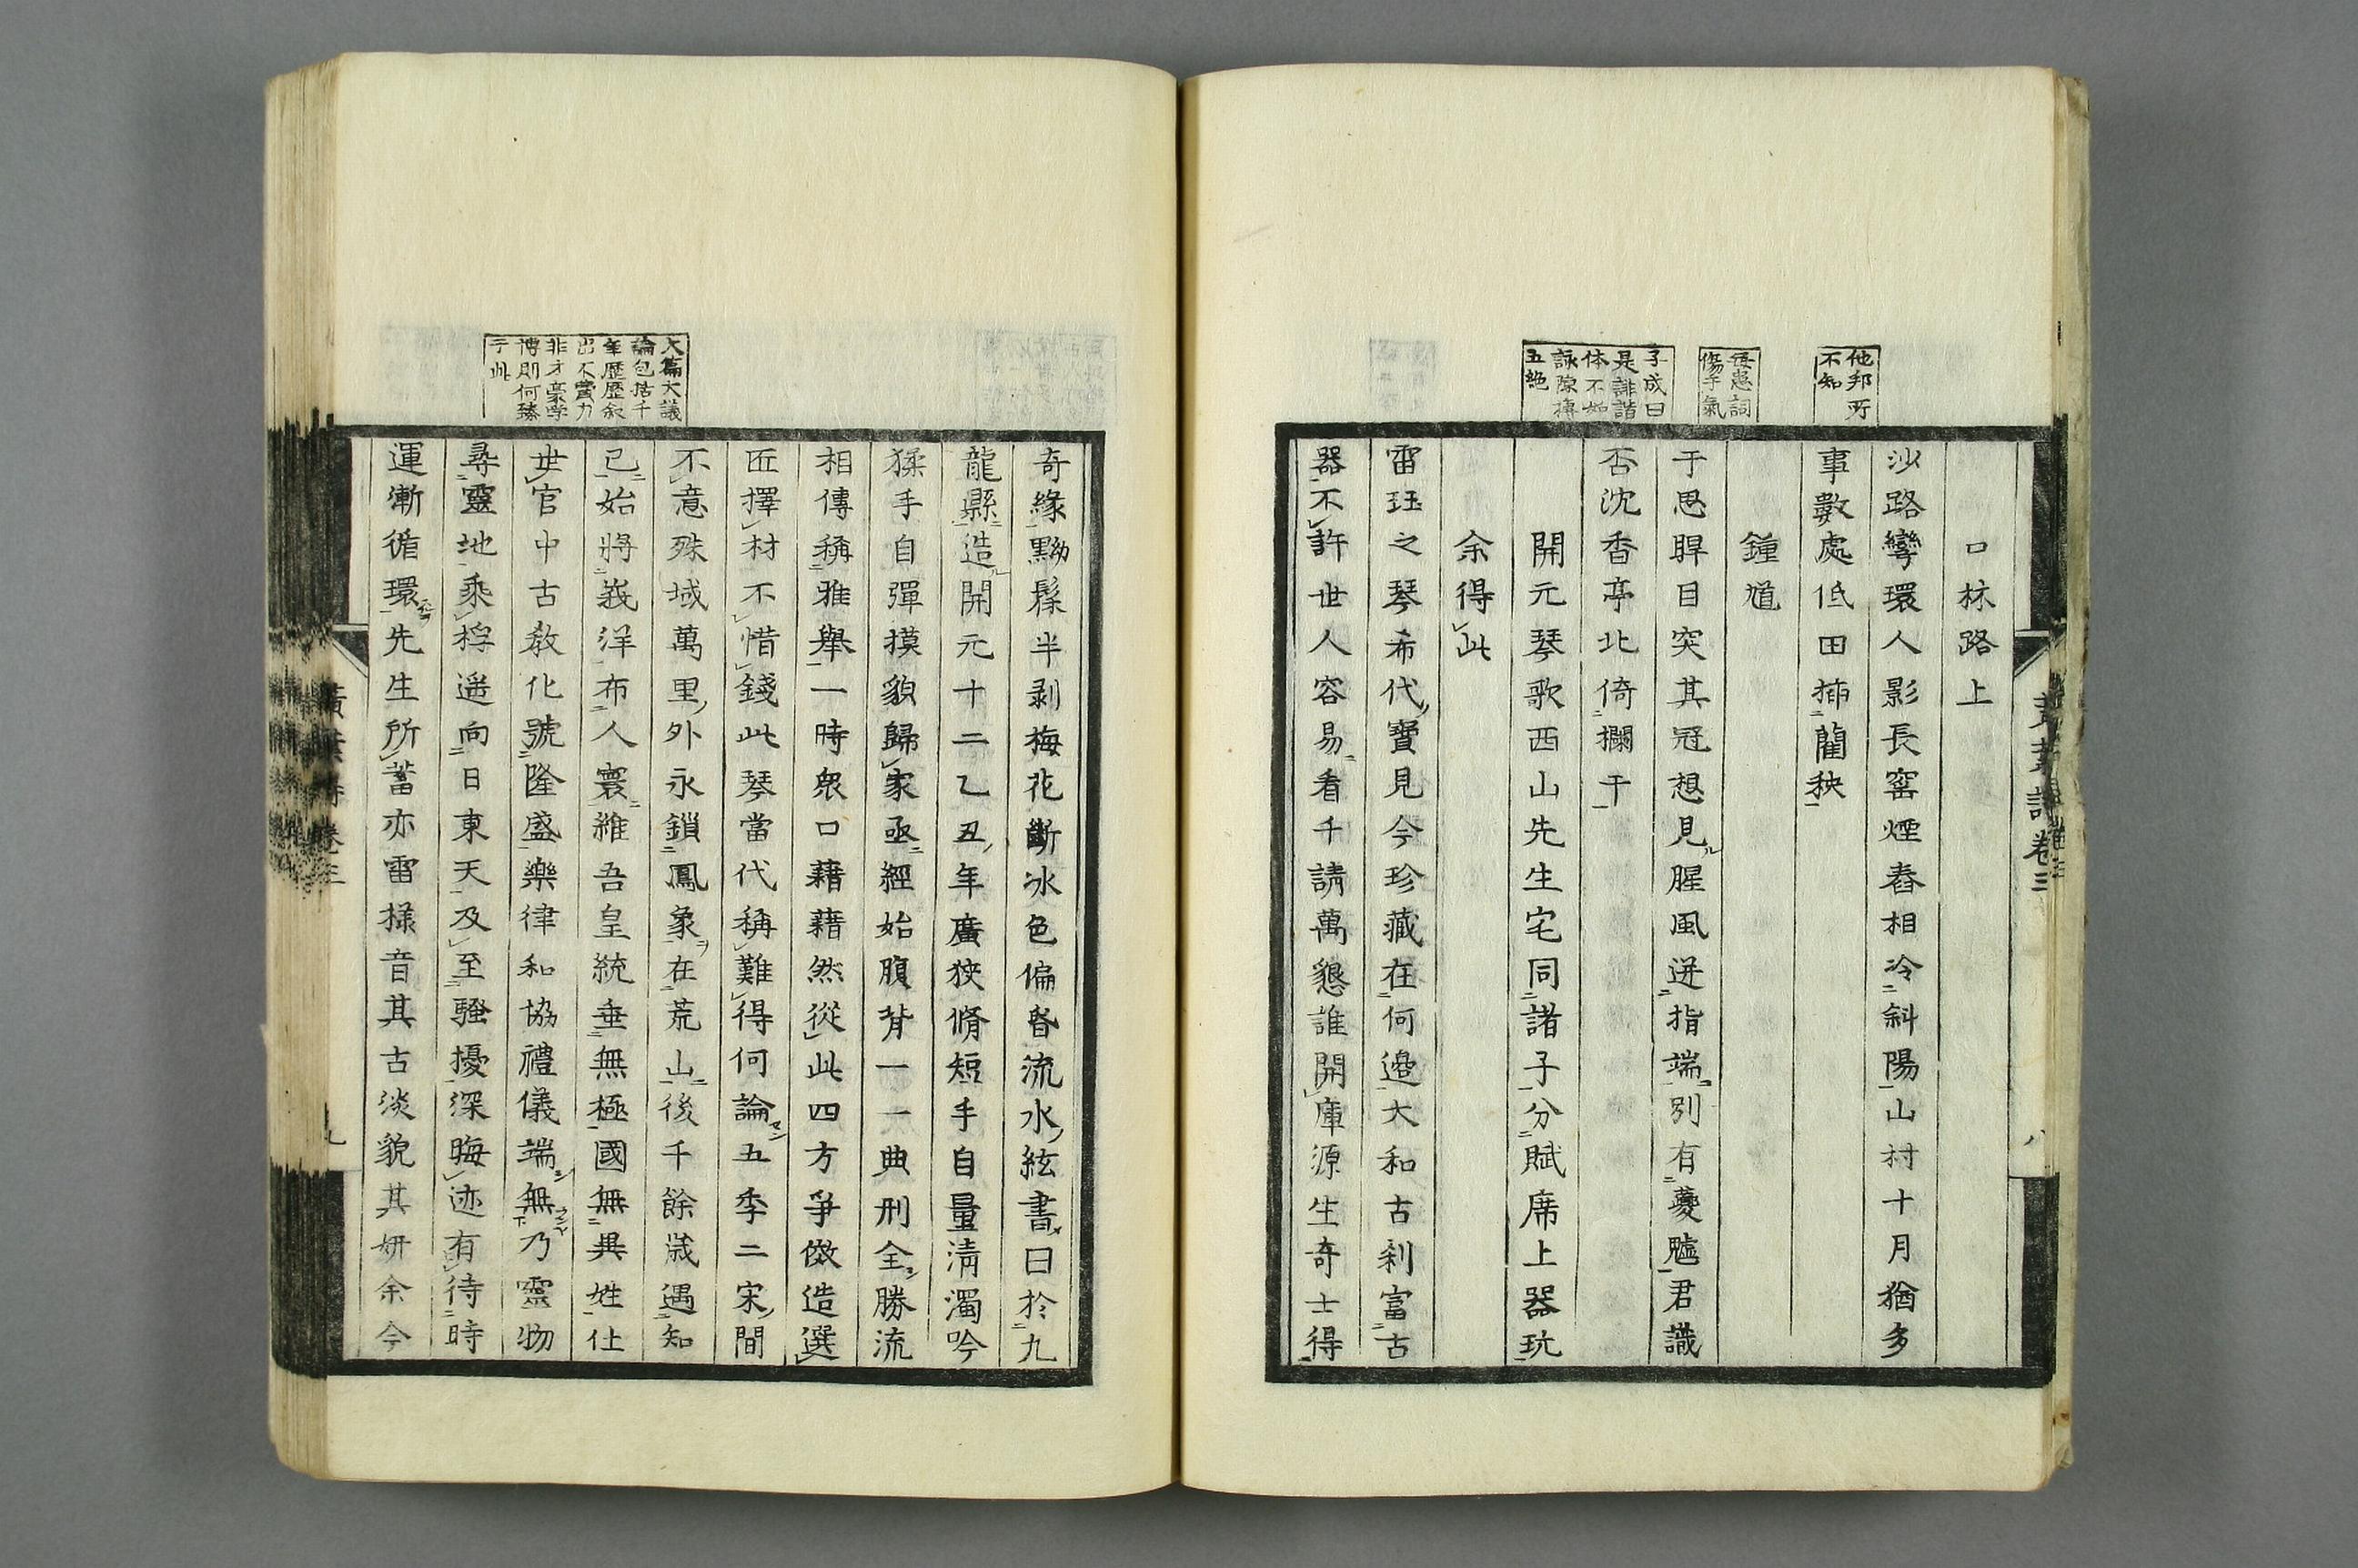 他邦所
不知
每患詞
傷乎氣
子成曰
是誹諧
体不如
詠陳摶
五絶
口林路上
沙路彎環人影長窑煙舂相冷斜陽山村十月猶多
事數處低田揷藺秧
鍾馗
于思睅目突其冠想見腥風迸指端別有夔魖君識
否沈香亭北倚欄干
開元琴歌西山先生宅同諸子分賦席上器玩
余得此
雷珏之琴希代寶見今珍藏在何邊大和古刹富古
器不許世人容易看千請萬懇誰開庫源生奇士得
黃葉詩卷三
八
大篇大議
論包括千
年歷歷叙
出不費力
非才豪學
博則何臻
于此
奇緣黝髹半剥梅花斷冰色偏昏流水絃書曰於九
龍縣造開元十二乙丑年廣狹脩短手自量淸濁吟
猱手自彈摸貌歸家亟經始腹背一一典刑全勝流
相傳稱雅舉一時衆口藉藉然從此四方爭倣造選
匠擇材不惜錢此琴當代稱難得何論五季二宋間
不意殊域萬里外永鎖鳳象在荒山後千餘歲遇知
已始將峩洋布人寰維吾皇統垂無極國無異姓仕
世官中古教化號隆盛樂律和協禮儀端無乃靈物
尋靈地乘桴遥向日東天及至騷擾深晦迹有待時
運漸循環先生所蓄亦雷㨾音其古淡貌其妍余今
黃葉詩卷三
九